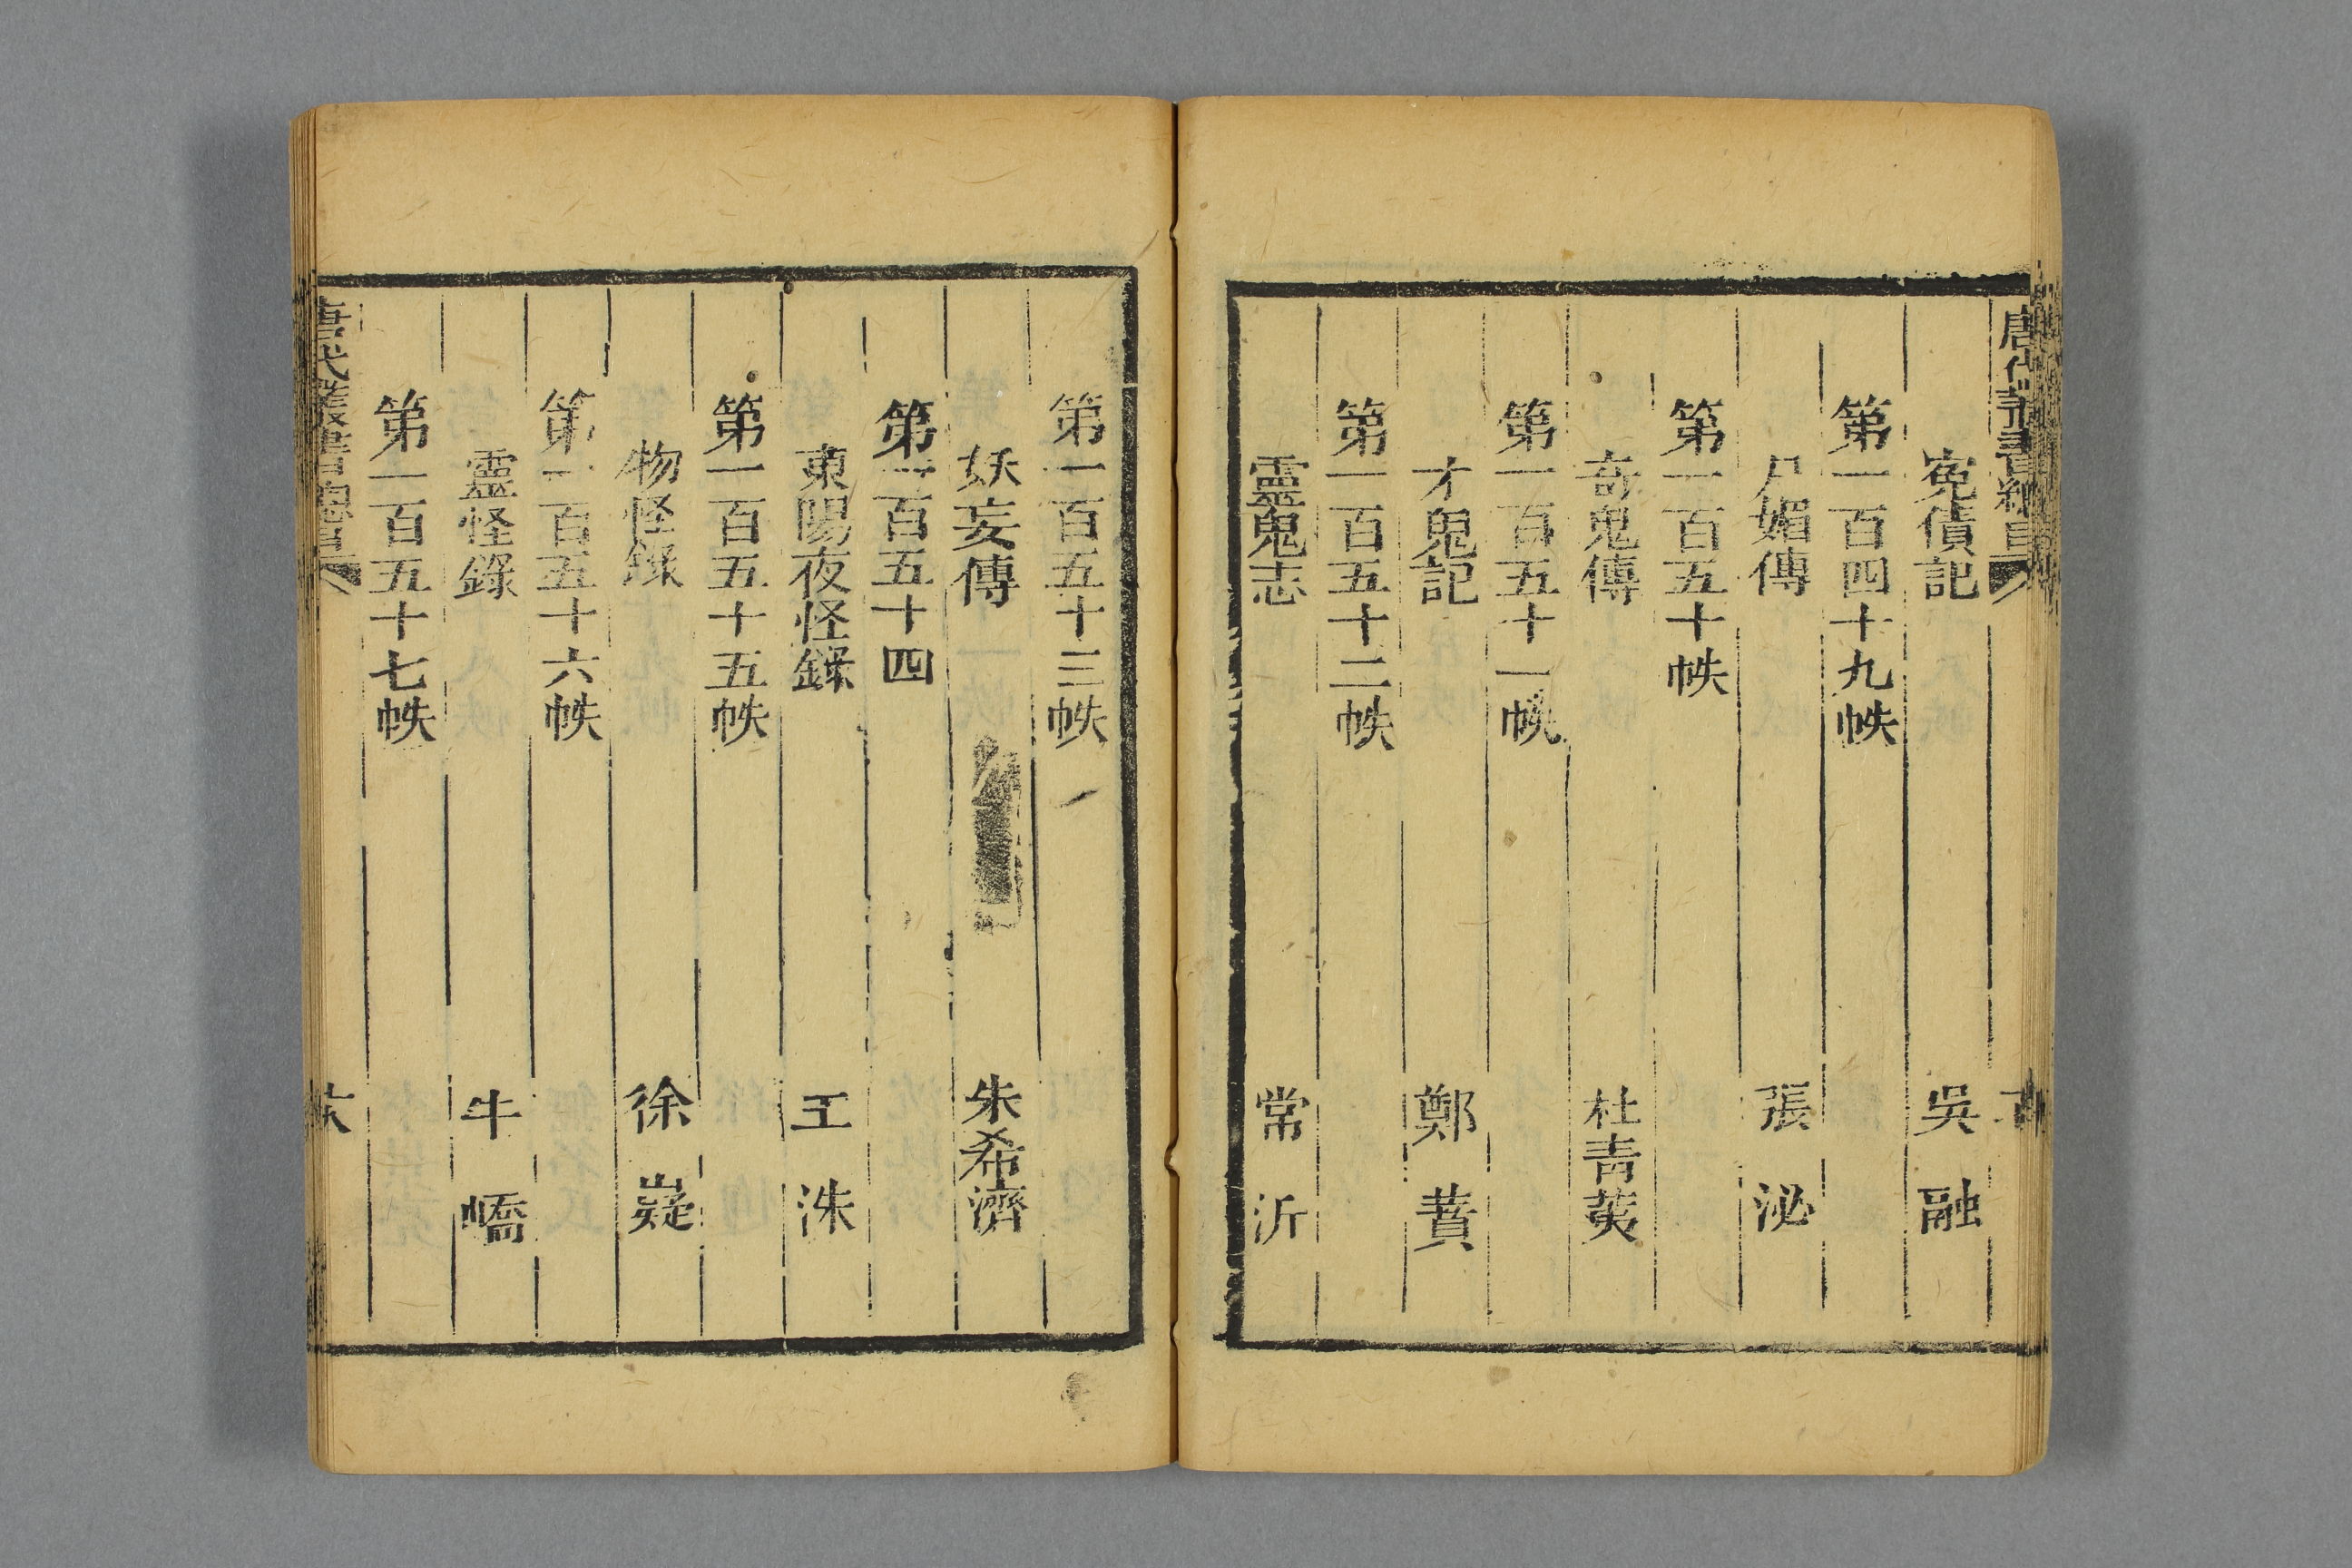 唐代叢書總目
寃債記 吳融
第一百四十九帙
尸媚傳 張泌
第一百五十帙
奇鬼傳 杜青荑
第一百五十一帙
才鬼記 鄭蕡
第一百五十二帙
靈鬼志 常沂
第一百五十三帙
妖妄傳 朱希濟
第一百五十四
東陽夜怪錄 王洙
第一百五十五帙
物怪錄 徐嶷
第一百五十六帙
靈怪錄 牛嶠
第一百五十七帙
唐代叢書總目